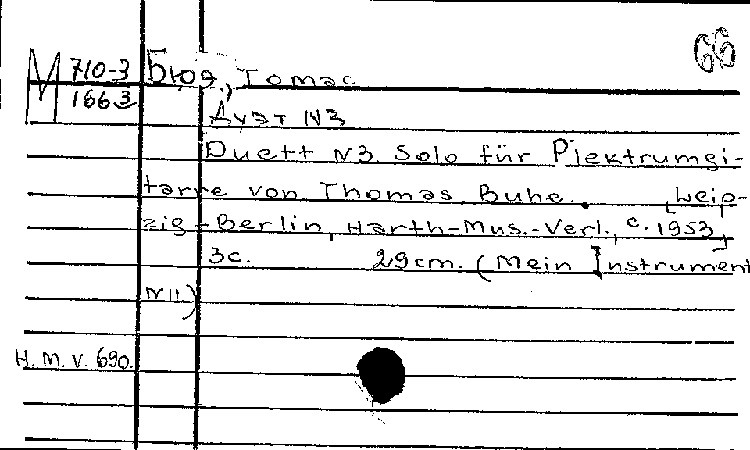 66
М 710-3 Бюэ, Томас
1663
Дуэт N3
Duett N3. Solo für Plektrumgi-
tarre von Thomas Buhe. [Leip-
zig-Berlin, Harth-Mus.-Verl., c. 1953]
3c. 29cm. (Mein Instrument
N11)
H. M. V. 690.